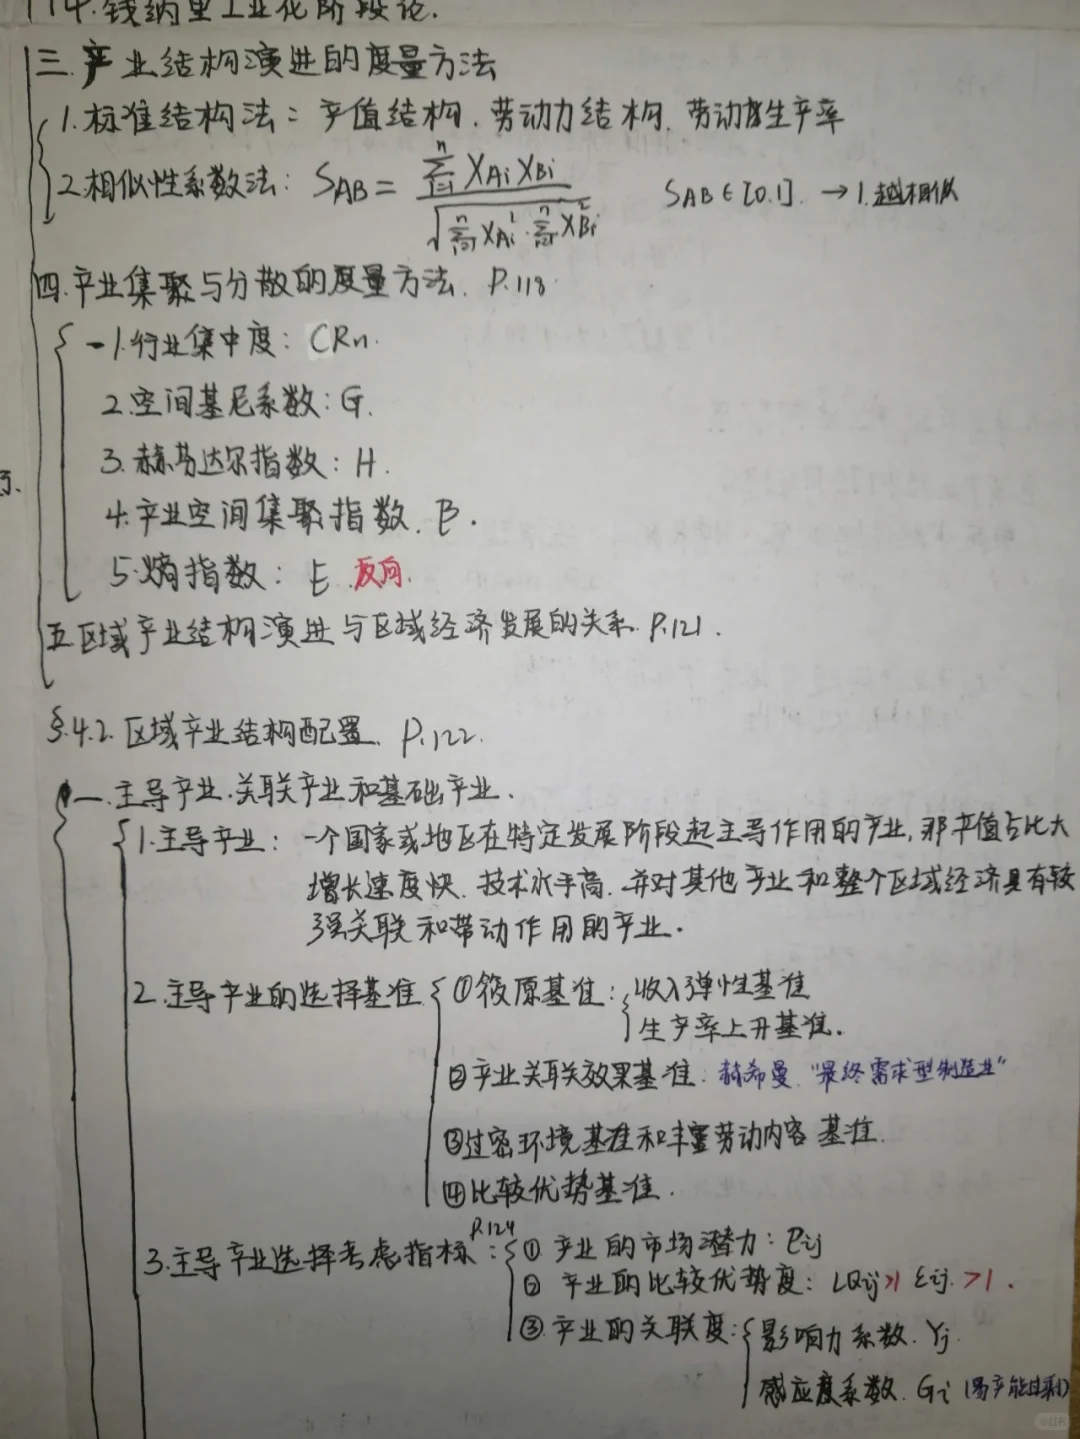 14.钱纳里工业化阶段论.
三.产业结构演进的度量方法
1.标准结构法: 产值结构.劳动力结构.劳动生产率
2.相似性系数法: SAB = Σ(i=1..n) XAi XBi / √(Σ(i=1..n) XAi² · Σ(i=1..n) XBi²) SAB∈[0.1]. →1.越相似
四.产业集聚与分散的度量方法. P.118.
1.行业集中度: CRn.
2.空间基尼系数: G.
3.赫芬达尔指数: H.
4.产业空间集聚指数. β.
5.熵指数: E.反向.
五.区域产业结构演进与区域经济发展的关系.P.121.
§.4.2.区域产业结构配置. P.122.
一.主导产业.关联产业和基础产业.
1.主导产业: 一个国家或地区在特定发展阶段起主导作用的产业,那产值占比大
增长速度快.技术水平高.并对其他产业和整个区域经济具有较
强关联和带动作用的产业.
2.主导产业的选择基准
①筱原基准: 收入弹性基准
生产率上升基准.
②产业关联效果基准: 赫希曼."最终需求型制造业"
③过密环境基准和丰富劳动内容基准.
④比较优势基准.
3.主导产业选择考虑指标: P.124
① 产业的市场潜力: eij
② 产业的比较优势度: LQij>1 εij.>1.
③.产业的关联度: 影响力系数.Yj.
感应度系数.Gi (易产能过剩)
小红书